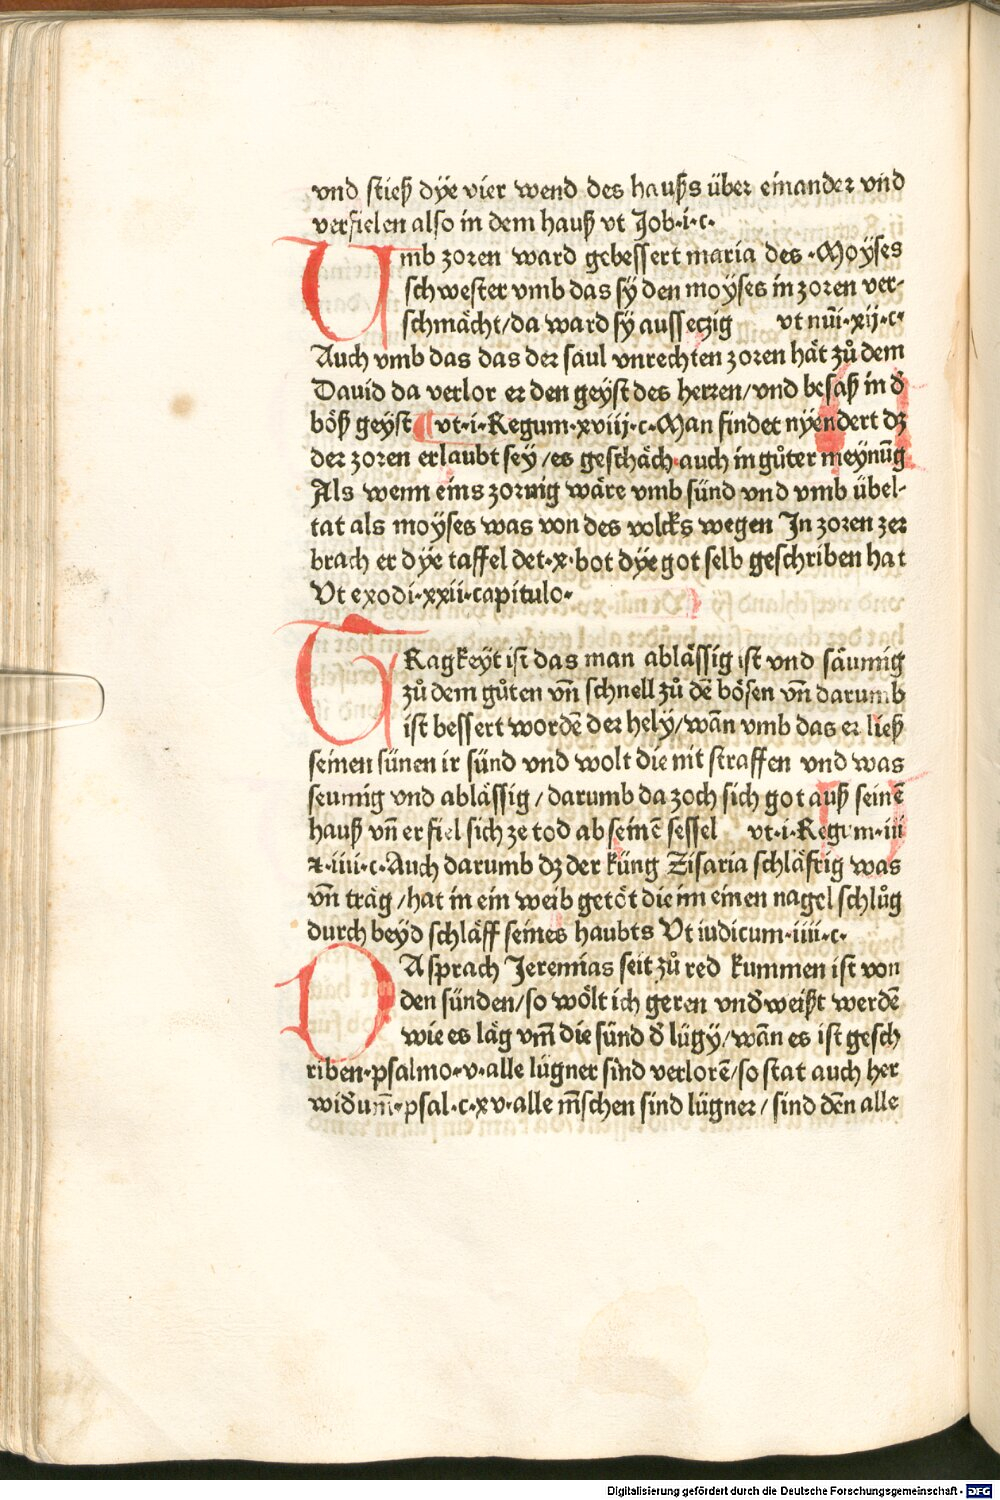 vnd stieß dÿe vier wend des haußs über einander vnd
verfielen also in dem hauß vt Job·i·c·
Umb zoren ward gebessert maria des ·Moÿses
schwester vmb das sÿ den moÿses in zoren ver-
schmächt/da ward sÿ aussetzig vt nūi·xij·c·
Auch vmb das das der saul vnrechten zoren hät zů dem
Dauid da verlor er den geÿst des herren/vnd besaß in d̄
böß geÿst vt·i·Regum·xviij·c·Man findet nÿendert dʒ
der zoren erlaubt seÿ/es geschäch auch in gůter meÿnūg
Als wenn eins zornig wäre vmb sünd vnd vmb übel-
tat als moÿses was von des volcks wegen Jn zoren zer
brach er dÿe taffel det·x·bot dÿe got selb geschriben hat
Vt exodi·xxii·capitulo·
TRagkeÿt ist das man ablässig ist vnd säumig
zů dem gůten vn̄ schnell zů dē bösen vn̄ darumb
ist bessert wordē der helÿ/wān vmb das er ließ
seinen sünen ir sünd vnd wolt die nit straffen vnd was
seumig vnd ablässig/darumb da zoch sich got auß seinē
hauß vn̄ er fiel sich ze tod ab seinē sessel vt·i·Regum·iii
⁊·iiii·c·Auch darumb dʒ der küng Zisaria schläfrig was
vn̄ träg/hat in ein weib getöt die im einen nagel schlůg
durch beÿd schläff seines haubts Vt iudicum·iiii·c·
DA sprach Jeremias seit zů red kummen ist von
den sünden/so wölt ich geren vnd̄weißt werdē
wie es läg vm̄ die sünd d̄ lügÿ/wān es ist gesch
riben·psalmo·v·alle lügner sind verlorē/so stat auch her
wid̄um̄·psal·c·xv·alle m̄schen sind lügner/sind dēn alle
Digitalisierung gefördert durch die Deutsche Forschungsgemeinschaft - DFG